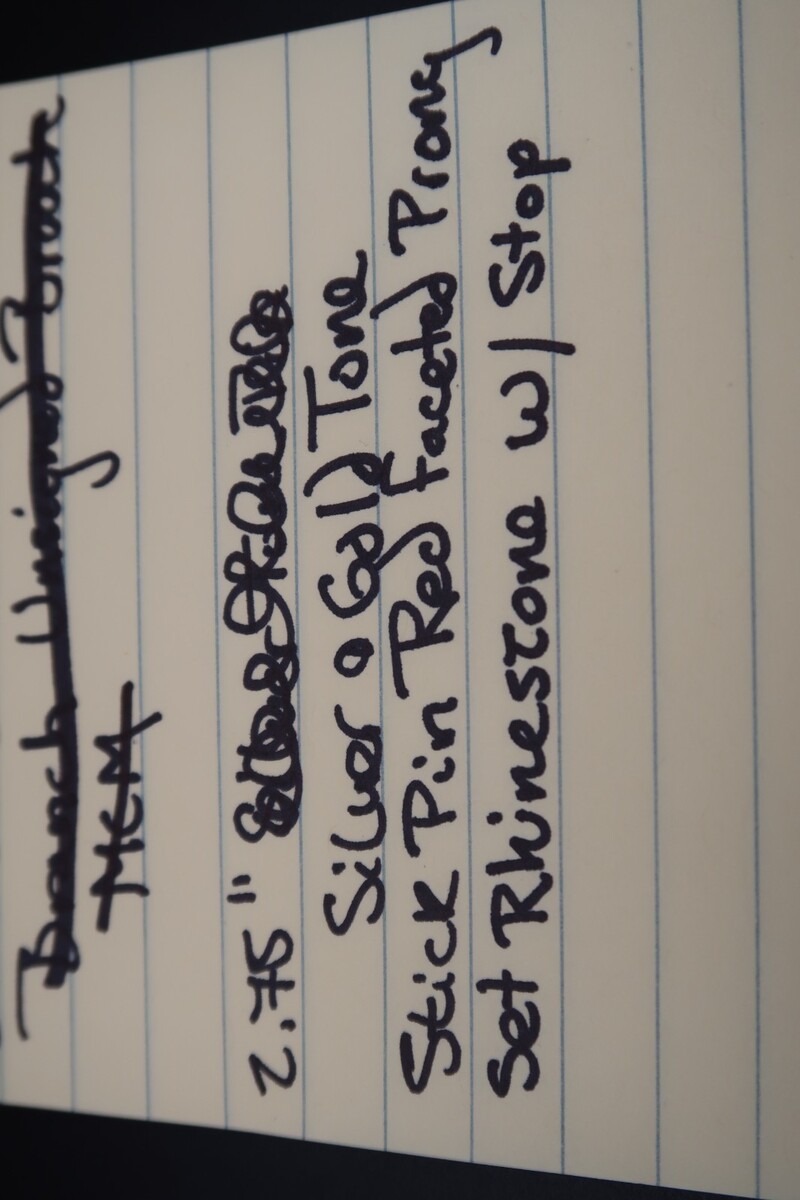 Branch Unsigned Brooch
MCM
2.75"
Silver & Gold Tone
Stick Pin Red Faceted Prong
Set Rhinestone w/ Stop